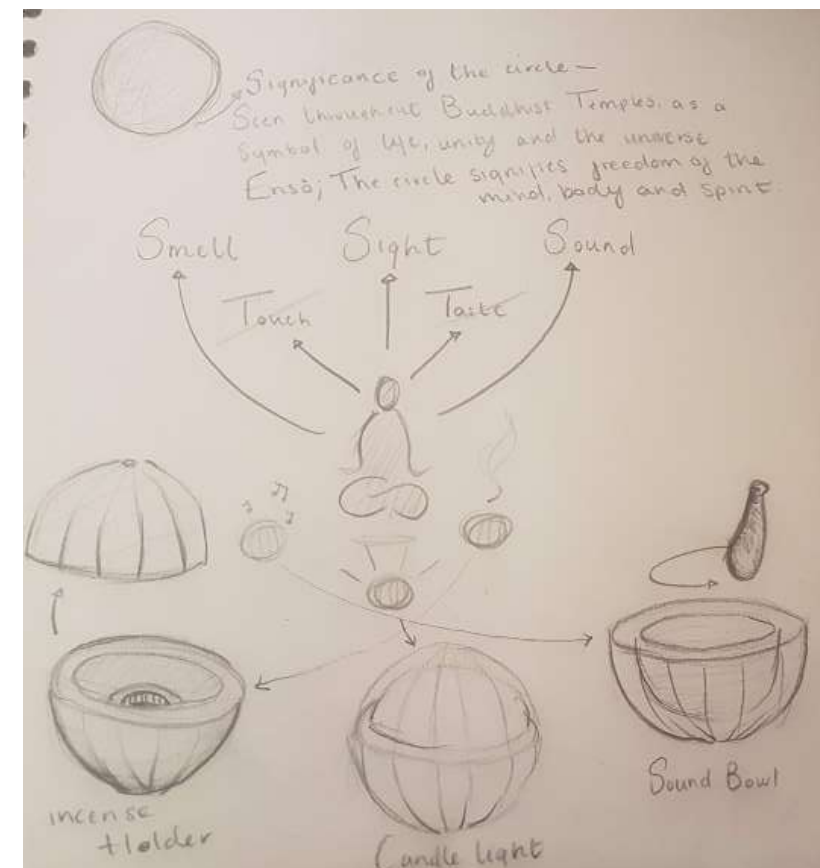 Significance of the circle –
Seen throughout Buddhist Temples, as a
symbol of life, unity and the universe
Ensō; The circle signifies freedom of the
mind, body and spirit.
Smell
Sight
Sound
Touch
Taste
incense
Holder
Candle light
Sound Bowl